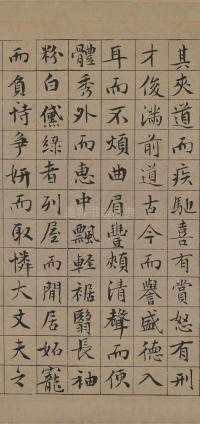 其夾道而疾馳喜有賞怒有刑
才俊滿前道古今而譽盛德入
耳而不煩曲眉豐頰清聲而便
體秀外而惠中飄輕裾翳長袖
粉白黛綠者列屋而閒居妬寵
而負恃爭妍而取憐大丈夫之